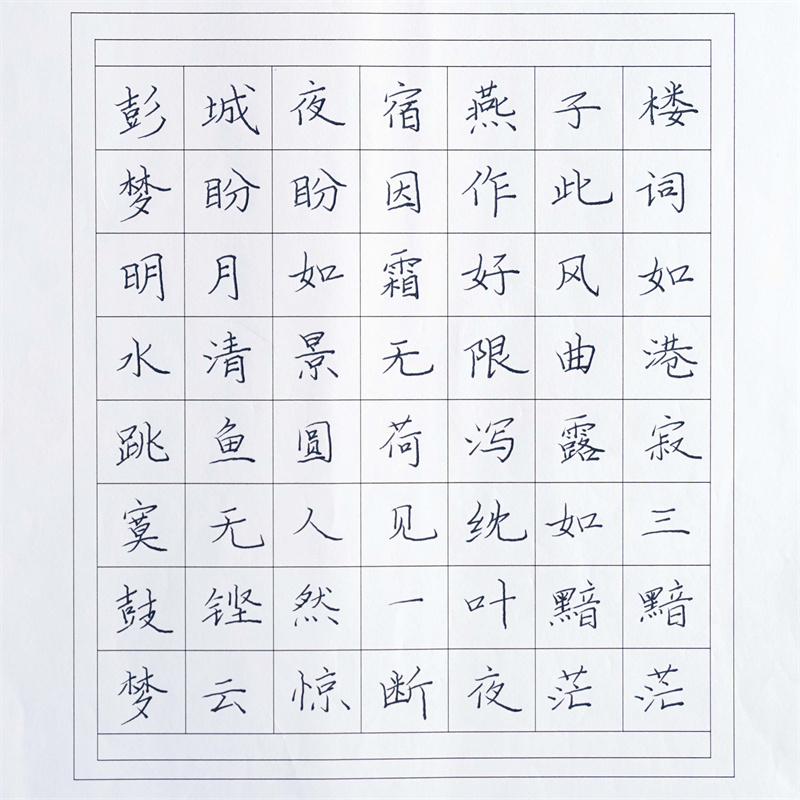 彭城夜宿燕子楼
梦盼盼因作此词
明月如霜好风如
水清景无限曲港
跳鱼圆荷泻露寂
寞无人见紞如三
鼓铿然一叶黯黯
梦云惊断夜茫茫